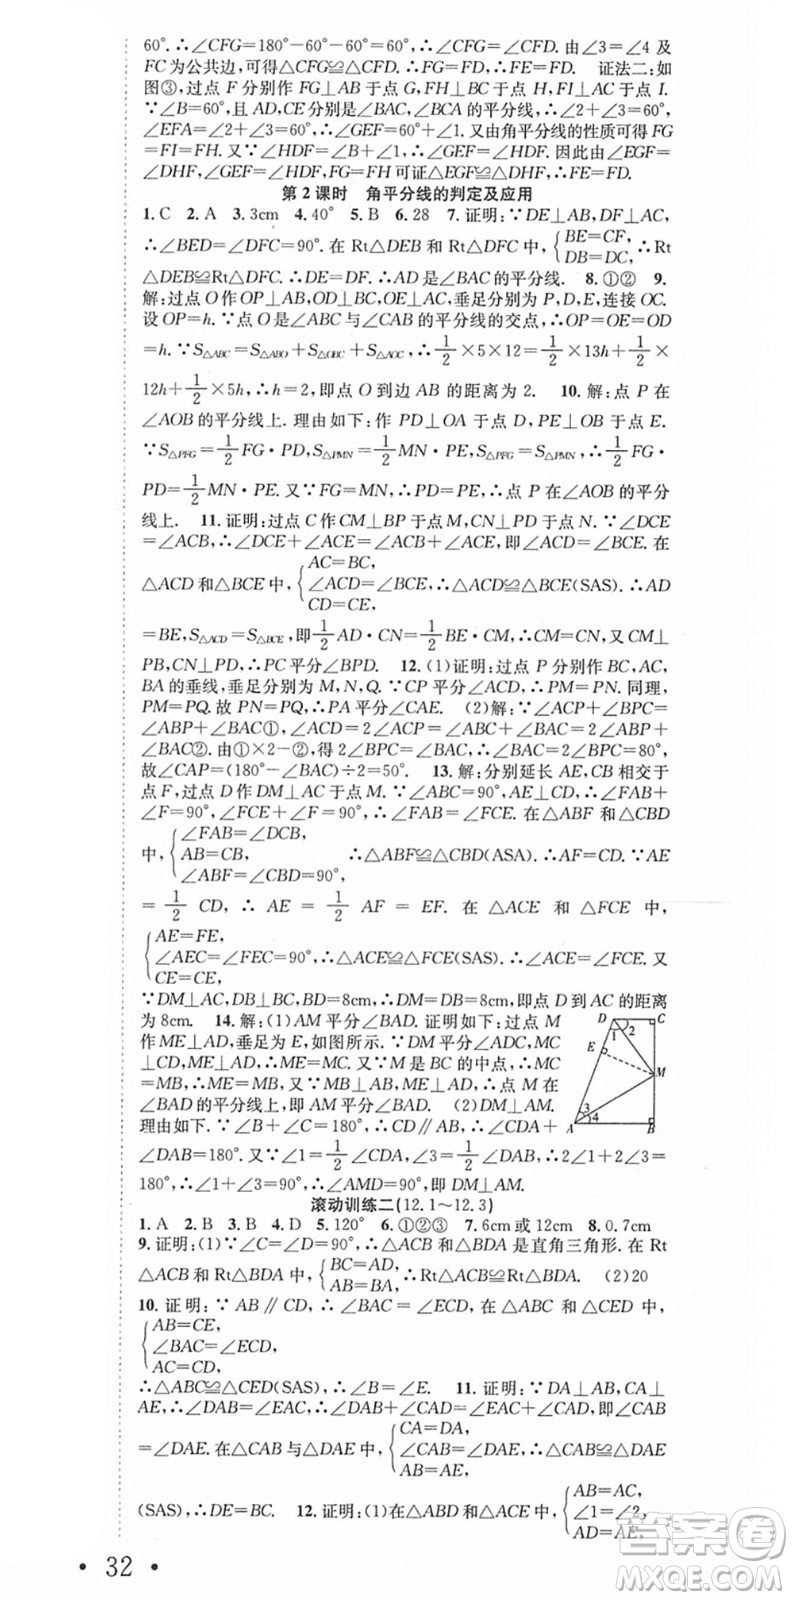 60°. ∴∠CFG=180°-60°-60°=60°, ∴∠CFG=∠CFD. 由∠3=∠4 及
FC为公共边,可得△CFG≌△CFD. ∴FG=FD, ∴FE=FD. 证法二:如
图③,过点 F 分别作 FG⊥AB 于点 G,FH⊥BC 于点 H,FI⊥AC 于点 I.
∵∠B=60°,且 AD,CE 分别是∠BAC,∠BCA 的平分线,∴∠2+∠3=60°,
∠EFA=∠2+∠3=60°, ∴∠GEF=60°+∠1. 又由角平分线的性质可得 FG
=FI=FH. 又∵∠HDF=∠B+∠1, ∴∠GEF=∠HDF. 因此由∠EGF=
∠DHF,∠GEF=∠HDF,FG=FH 可证△EGF≌△DHF, ∴FE=FD.
第 2 课时 角平分线的判定及应用
1. C 2. A 3. 3cm 4. 40° 5. B 6. 28 7. 证明:∵DE⊥AB,DF⊥AC,
∴∠BED=∠DFC=90°. 在 Rt△DEB 和 Rt△DFC 中, { BE=CF, DB=DC, ∴Rt
△DEB≌Rt△DFC. ∴DE=DF. ∴AD是∠BAC的平分线. 8. ①② 9.
解:过点 O 作 OP⊥AB,OD⊥BC,OE⊥AC,垂足分别为 P,D,E,连接 OC.
设 OP=h. ∵点 O 是∠ABC 与∠CAB 的平分线的交点,∴OP=OE=OD
=h. ∵S△ABC=S△ABO+S△OBC+S△AOC, ∴1/2×5×12=1/2×13h+1/2×
12h+1/2×5h, ∴h=2,即点 O 到边 AB 的距离为 2. 10. 解:点 P 在
∠AOB 的平分线上. 理由如下:作 PD⊥OA 于点 D,PE⊥OB 于点 E.
∵S△PFG=1/2FG·PD,S△PMN=1/2MN·PE,S△PFG=S△PMN, ∴1/2FG·
PD=1/2MN·PE. 又∵FG=MN, ∴PD=PE, ∴点 P 在∠AOB 的平分
线上. 11. 证明:过点 C 作 CM⊥BP 于点 M,CN⊥PD 于点 N. ∵∠DCE
=∠ACB, ∴∠DCE+∠ACE=∠ACB+∠ACE,即∠ACD=∠BCE. 在
△ACD 和△BCE 中, { AC=BC, ∠ACD=∠BCE, CD=CE, ∴△ACD≌△BCE(SAS). ∴AD
=BE,S△ACD=S△BCE,即1/2AD·CN=1/2BE·CM, ∴CN=CM,又 CM⊥
PB,CN⊥PD, ∴PC 平分∠BPD. 12. (1)证明:过点 P 分别作 BC,AC,
BA 的垂线,垂足分别为 M,N,Q. ∵CP 平分∠ACD, ∴PM=PN. 同理,
PM=PQ. 故 PN=PQ, ∴PA 平分∠CAE. (2)解:∵∠ACP+∠BPC=
∠ABP+∠BAC①,∠ACD=2∠ACP=∠ABC+∠BAC=2∠ABP+
∠BAC②. 由①×2-②得 2∠BPC=∠BAC, ∴∠BAC=2∠BPC=80°,
故∠CAP=(180°-∠BAC)÷2=50°. 13. 解:分别延长 AE,CB 相交于
点 F,过点 D 作 DM⊥AC 于点 M. ∵∠ABC=∠AEC=90°, ∴∠FAB+
∠F=90°,∠FCE+∠F=90°, ∴∠FAB=∠FCE. 在△ABF 和△CBD
中, { ∠FAB=∠DCB, AB=CB, ∠ABF=∠CBD=90°, ∴△ABF≌△CBD(ASA). ∴AF=CD. ∵AE
=1/2CD, ∴AE=1/2AF=EF. 在△ACE 和△FCE 中,
{ AE=FE, ∠AEC=∠FEC=90°, CE=CE, ∴△ACE≌△FCE(SAS). ∴∠ACE=∠FCE. 又
∵DM⊥AC,DB⊥BC,BD=8cm, ∴DM=DB=8cm,即点 D 到 AC 的距离
为 8cm. 14. 解:(1)AM 平分∠BAD. 证明如下:过点 M
作 ME⊥AD,垂足为 E,如图所示. ∵DM 平分∠ADC,
∴∠1=∠2. ∵MC⊥CD,ME⊥AD, ∴ME=MC. 又∵M 是 BC 的中点, ∴MC=
MB, ∴ME=MB. 又∵MB⊥AB,ME⊥AD, ∴点 M 在
∠BAD 的平分线上,即 AM 平分∠BAD. (2)DM⊥AM.
理由如下:∵∠B+∠C=180°, ∴CD∥AB, ∴∠CDA+
∠DAB=180°. 又∵∠1=1/2∠CDA,∠3=1/2∠DAB, ∴2∠1+2∠3=
180°, ∴∠1+∠3=90°, ∴∠AMD=90°,即 DM⊥AM.
D C
1 2
E
M
3
4
A B
滚动训练二(12.1～12.3)
1. A 2. B 3. B 4. D 5. 120° 6. ①②③ 7. 6cm 或 12cm 8. 0.7cm
9. 证明:(1)∵∠C=∠D=90°, ∴△ACB 和△BDA 是直角三角形. 在 Rt
△ACB 和 Rt△BDA 中, { BC=AD, AB=BA, ∴Rt△ACB≌Rt△BDA. (2)20
10. 证明:∵AB∥CD, ∴∠BAC=∠ECD,在△ABC 和△CED 中,
{ AB=CE, ∠BAC=∠ECD, AC=CD,
∴△ABC≌△CED(SAS), ∴∠B=∠E. 11. 证明:∵DA⊥AB,CA⊥
AE, ∴∠DAB=∠EAC=90°, ∴∠DAB+∠CAD=∠EAC+∠CAD,即∠CAB
=∠DAE. 在△CAB 与△DAE 中, { CA=DA, ∠CAB=∠DAE, AB=AE, ∴△CAB≌△DAE
(SAS), ∴DE=BC. 12. 证明:(1)在△ABD 和△ACE 中, { AB=AC, ∠1=∠2, AD=AE,
· 32 ·
答案圈
MXQE.COM